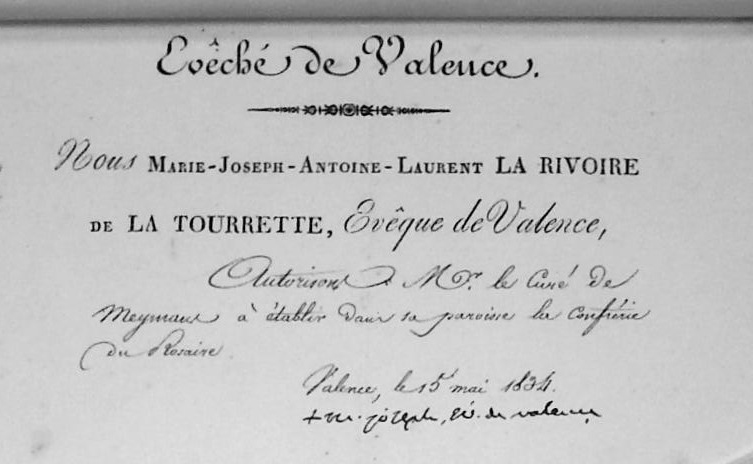 Evêché de Valence.
Nous MARIE-JOSEPH-ANTOINE-LAURENT LA RIVOIRE
DE LA TOURRETTE, Evêque de Valence,
Autorisons Mr. le Curé de
Meymans à établir dans sa paroisse la confrérie
du Rosaire
Valence, le 15 mai 1834.
+ m. joseph, év. de valence